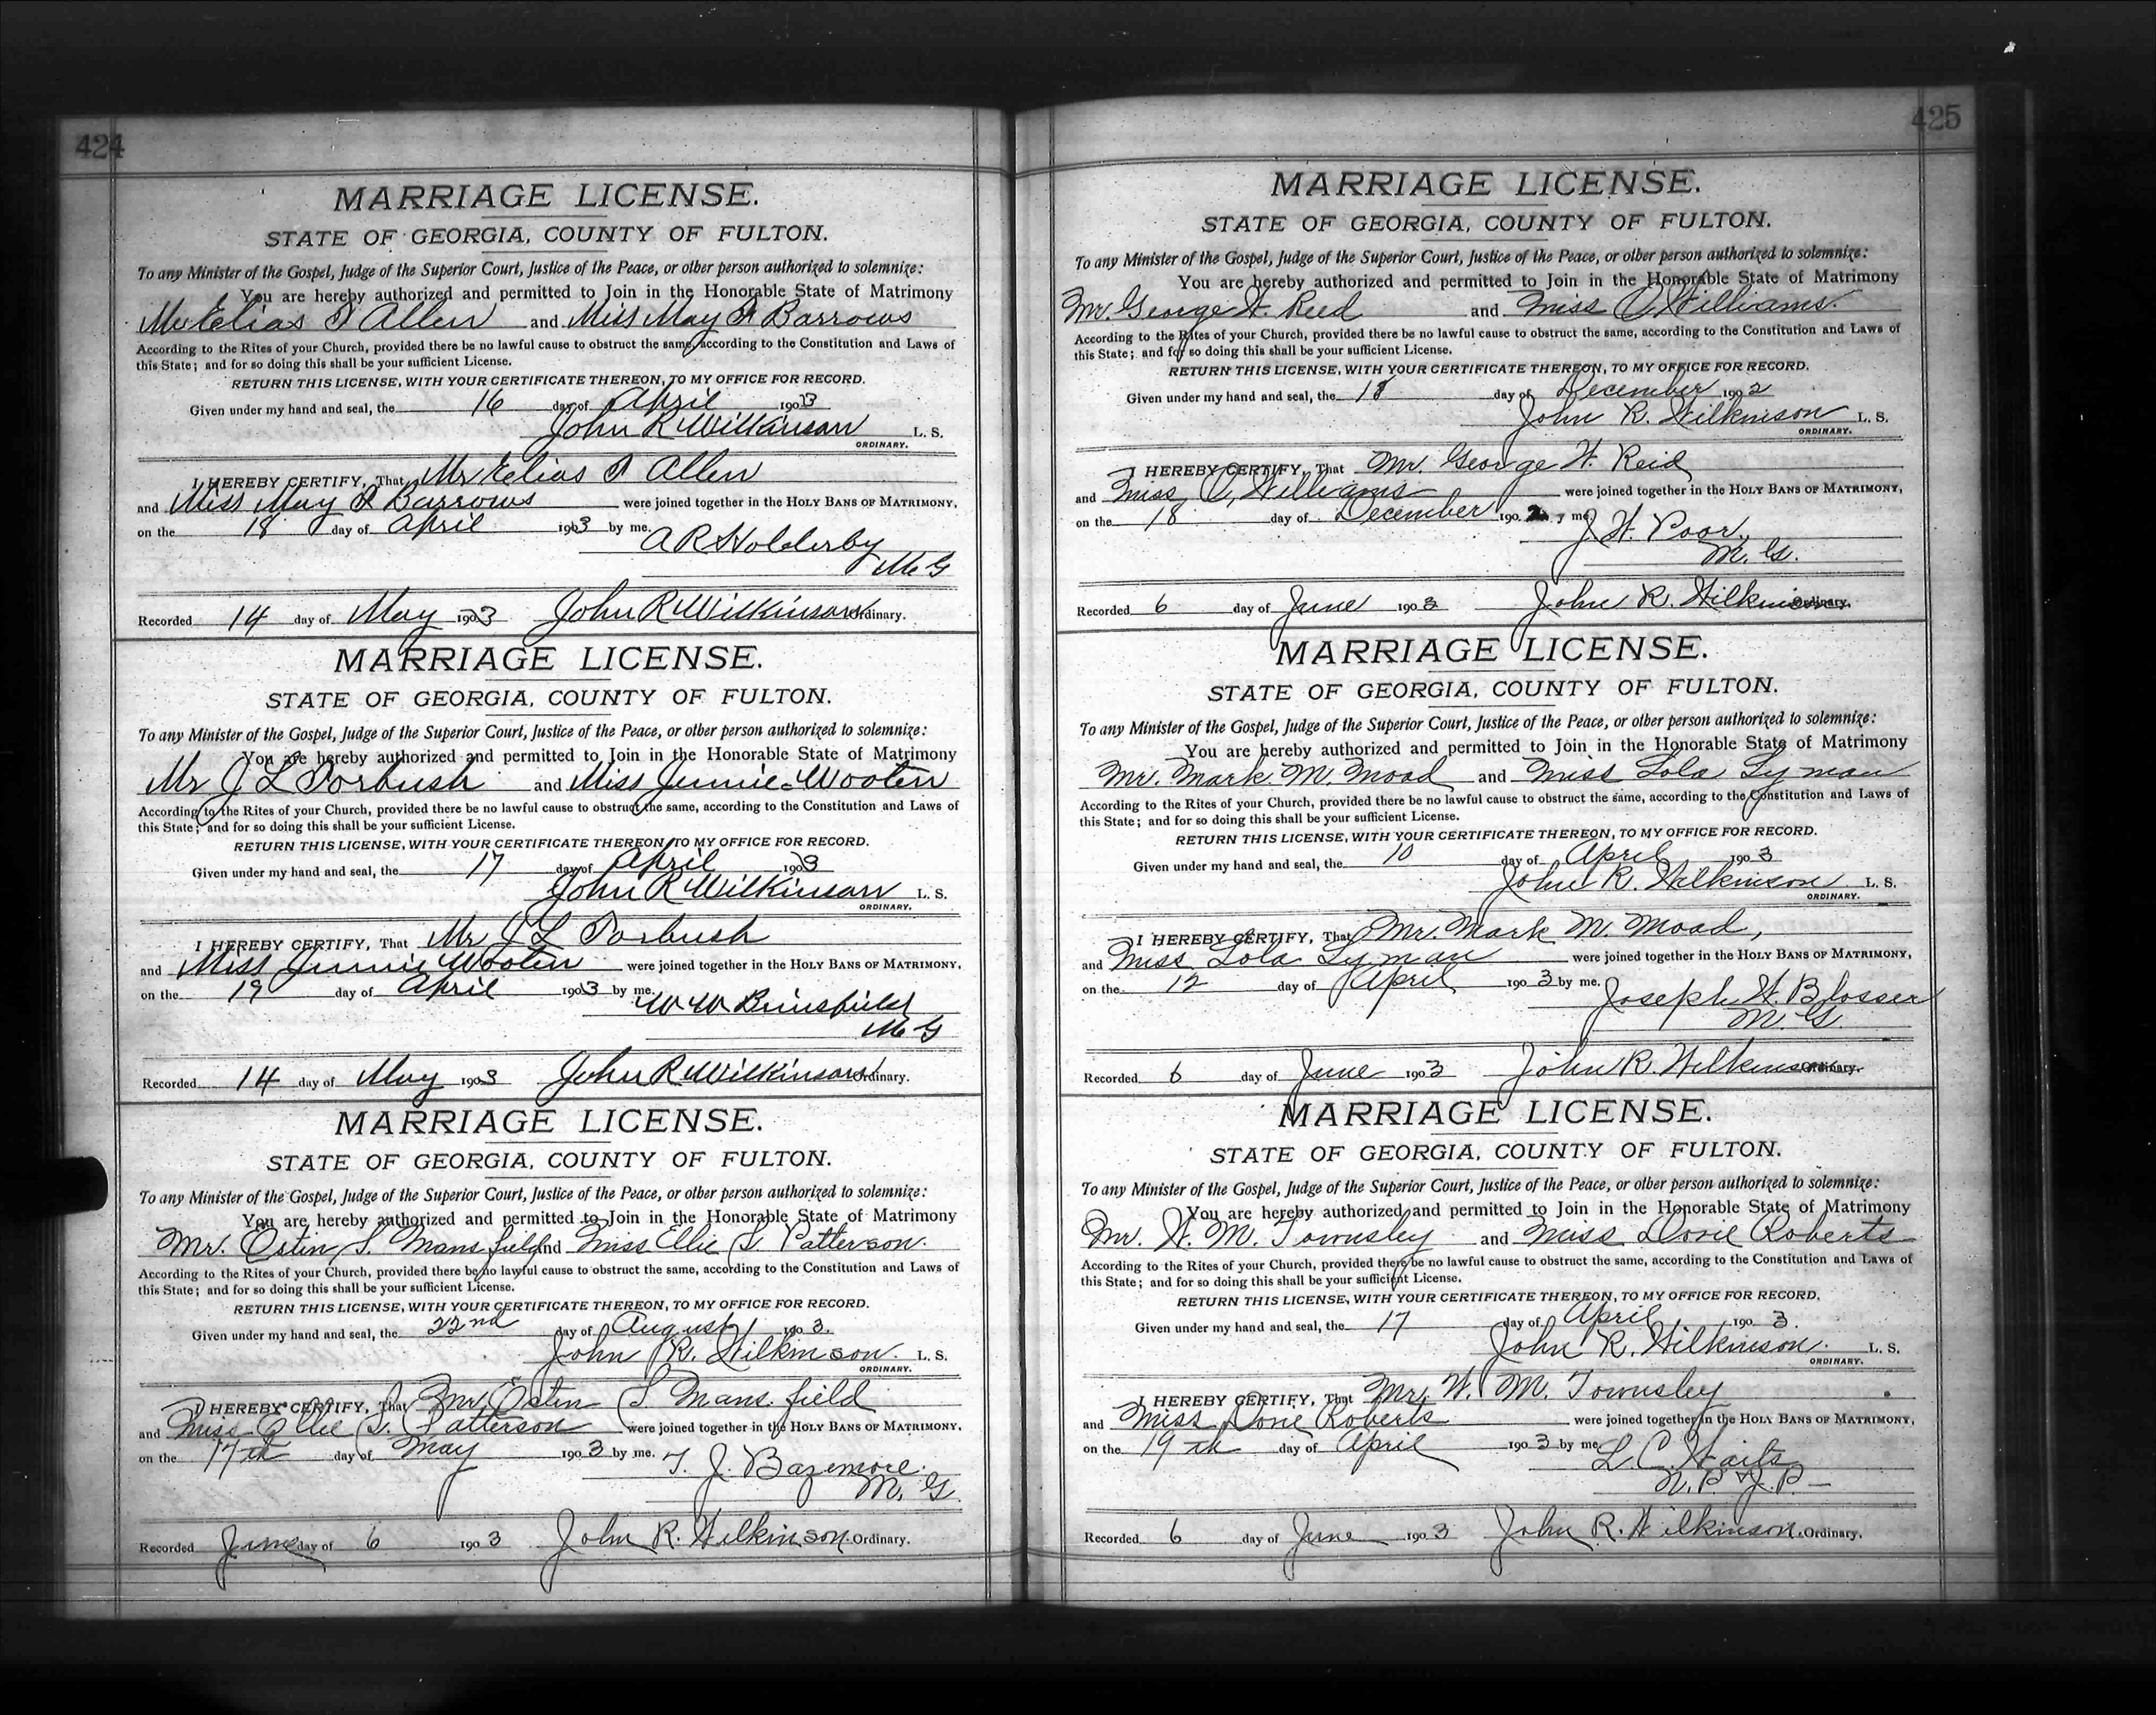 424
MARRIAGE LICENSE.
STATE OF GEORGIA, COUNTY OF FULTON.
To any Minister of the Gospel, Judge of the Superior Court, Justice of the Peace, or other person authorized to solemnize:
You are hereby authorized and permitted to Join in the Honorable State of Matrimony
Mr Elias Allen and Miss May Barrows
According to the Rites of your Church, provided there be no lawful cause to obstruct the same, according to the Constitution and Laws of
this State; and for so doing this shall be your sufficient License.
RETURN THIS LICENSE, WITH YOUR CERTIFICATE THEREON, TO MY OFFICE FOR RECORD.
Given under my hand and seal, the 16 day of April 1903
John R Wilkinson L. S.
ORDINARY.
I HEREBY CERTIFY, That Mr Elias Allen
and Miss May Barrows were joined together in the HOLY BANS OF MATRIMONY,
on the 18 day of April 1903 by me.
A R Holderby
M G
Recorded 14 day of May 1903 John R Wilkinson Ordinary.
MARRIAGE LICENSE.
STATE OF GEORGIA, COUNTY OF FULTON.
To any Minister of the Gospel, Judge of the Superior Court, Justice of the Peace, or other person authorized to solemnize:
You are hereby authorized and permitted to Join in the Honorable State of Matrimony
Mr J L and Miss Jennie Wooten
According to the Rites of your Church, provided there be no lawful cause to obstruct the same, according to the Constitution and Laws of
this State; and for so doing this shall be your sufficient License.
RETURN THIS LICENSE, WITH YOUR CERTIFICATE THEREON, TO MY OFFICE FOR RECORD.
Given under my hand and seal, the 17 day of April 1903
John R Wilkinson L. S.
ORDINARY.
I HEREBY CERTIFY, That Mr J L
and Miss Jennie Wooten were joined together in the HOLY BANS OF MATRIMONY,
on the 19 day of April 1903 by me.
W W Brinsfield
M G
Recorded 14 day of May 1903 John R Wilkinson Ordinary.
MARRIAGE LICENSE.
STATE OF GEORGIA, COUNTY OF FULTON.
To any Minister of the Gospel, Judge of the Superior Court, Justice of the Peace, or other person authorized to solemnize:
You are hereby authorized and permitted to Join in the Honorable State of Matrimony
Mr. Ostin S. Mansfield and Miss Ellie S. Patterson.
According to the Rites of your Church, provided there be no lawful cause to obstruct the same, according to the Constitution and Laws of
this State; and for so doing this shall be your sufficient License.
RETURN THIS LICENSE, WITH YOUR CERTIFICATE THEREON, TO MY OFFICE FOR RECORD.
Given under my hand and seal, the 22nd day of August 1903.
John R. Wilkinson. L. S.
ORDINARY.
I HEREBY CERTIFY, That Mr. Ostin S. Mansfield
and Miss Ellie S. Patterson were joined together in the HOLY BANS OF MATRIMONY,
on the 17th day of May 1903 by me.
T. J. Bazemore.
M. G.
Recorded June day of 6 1903 John R. Wilkinson. Ordinary.
425
MARRIAGE LICENSE.
STATE OF GEORGIA, COUNTY OF FULTON.
To any Minister of the Gospel, Judge of the Superior Court, Justice of the Peace, or other person authorized to solemnize:
You are hereby authorized and permitted to Join in the Honorable State of Matrimony
Mr. George W. Reed and Miss O, Williams.
According to the Rites of your Church, provided there be no lawful cause to obstruct the same, according to the Constitution and Laws of
this State; and for so doing this shall be your sufficient License.
RETURN THIS LICENSE, WITH YOUR CERTIFICATE THEREON, TO MY OFFICE FOR RECORD.
Given under my hand and seal, the 18 day of December 1902
John R. Wilkinson L. S.
ORDINARY.
I HEREBY CERTIFY, That Mr. George W. Reid
and Miss O, Williams were joined together in the HOLY BANS OF MATRIMONY,
on the 18 day of December 1902 by me
J. W. Poor,
M. G.
Recorded 6 day of June 1903 John R. Wilkinson Ordinary.
MARRIAGE LICENSE.
STATE OF GEORGIA, COUNTY OF FULTON.
To any Minister of the Gospel, Judge of the Superior Court, Justice of the Peace, or other person authorized to solemnize:
You are hereby authorized and permitted to Join in the Honorable State of Matrimony
Mr. Mark M. Mood and Miss Lola Lyman
According to the Rites of your Church, provided there be no lawful cause to obstruct the same, according to the Constitution and Laws of
this State; and for so doing this shall be your sufficient License.
RETURN THIS LICENSE, WITH YOUR CERTIFICATE THEREON, TO MY OFFICE FOR RECORD.
Given under my hand and seal, the 10 day of April 1903
John R. Wilkinson L. S.
ORDINARY.
I HEREBY CERTIFY, That Mr. Mark M. Mood,
and Miss Lola Lyman were joined together in the HOLY BANS OF MATRIMONY,
on the 12 day of April 1903 by me.
Joseph W. Blosser
M. G.
Recorded 6 day of June 1903 John R. Wilkinson Ordinary.
MARRIAGE LICENSE.
STATE OF GEORGIA, COUNTY OF FULTON.
To any Minister of the Gospel, Judge of the Superior Court, Justice of the Peace, or other person authorized to solemnize:
You are hereby authorized and permitted to Join in the Honorable State of Matrimony
Mr. W. M. Townsley and Miss Dovie Roberts
According to the Rites of your Church, provided there be no lawful cause to obstruct the same, according to the Constitution and Laws of
this State; and for so doing this shall be your sufficient License.
RETURN THIS LICENSE, WITH YOUR CERTIFICATE THEREON, TO MY OFFICE FOR RECORD.
Given under my hand and seal, the 17 day of April 1903.
John R. Wilkinson. L. S.
ORDINARY.
I HEREBY CERTIFY, That Mr. W. M. Townsley
and Miss Dovie Roberts were joined together in the HOLY BANS OF MATRIMONY,
on the 19th day of April 1903 by me
L. C. Waits
N. P. & J. P.
Recorded 6 day of June 1903 John R. Wilkinson. Ordinary.